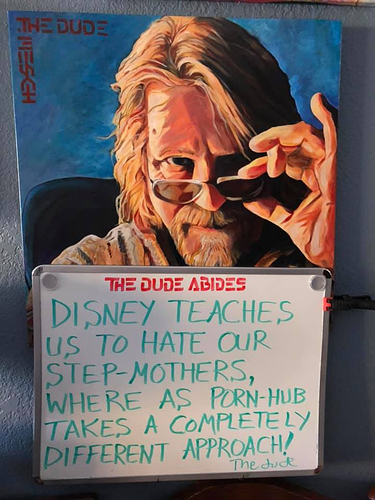 THE DUDE
MESCH
THE DUDE ABIDES
DISNEY TEACHES
US TO HATE OUR
STEP-MOTHERS,
WHERE AS PORN-HUB
TAKES A COMPLETELY
DIFFERENT APPROACH!
The dude